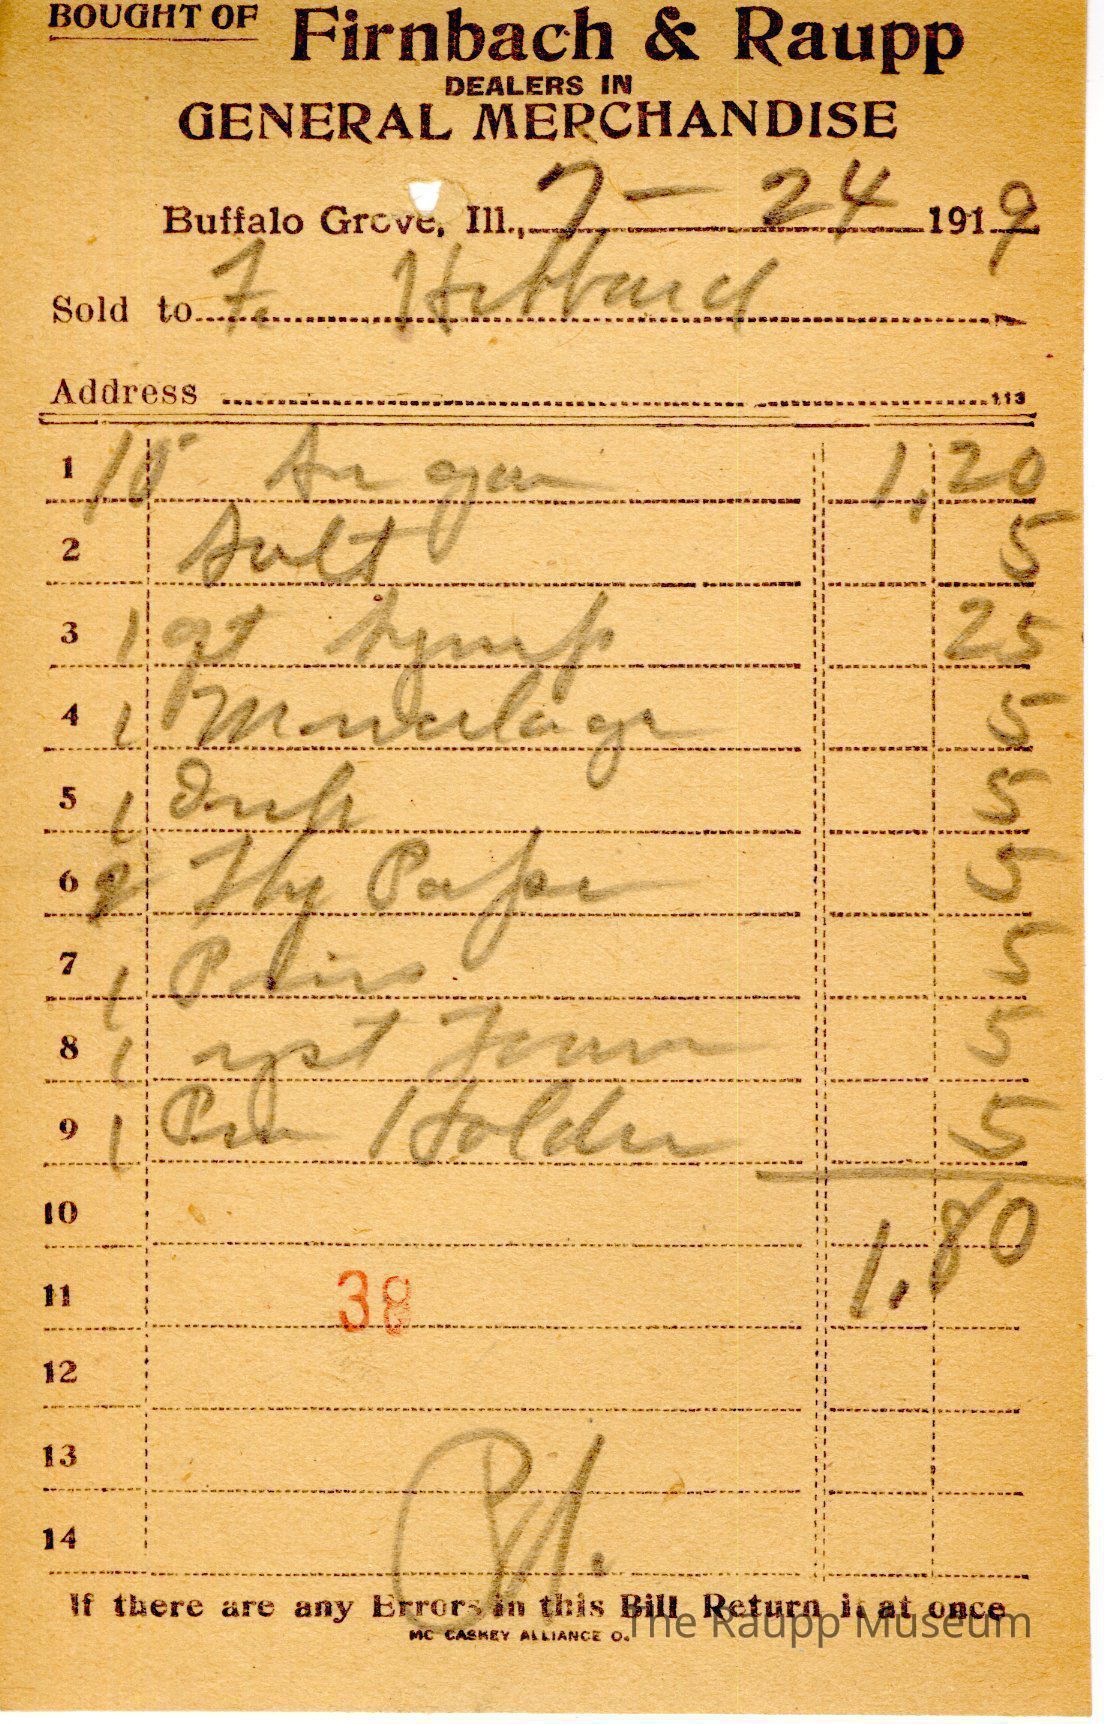 BOUGHT OF Firnbach & Raupp
DEALERS IN
GENERAL MERCHANDISE
Buffalo Grove, Ill., 7 - 24 1919
Sold to F. Hibbard
Address
113
1 10 Sugar 1,20
2 Salt 5
3 1 qt Syrup 25
4 1 Mucilage 5
5 1 5
6 2 Fly Paper 5
7 1 Pins 5
8 1 yst Foam 5
9 1 Pen Holder 5
10 1,80
11 38
12
13
14 Pd.
If there are any Errors in this Bill Return it at once
MC CASKEY ALLIANCE O.
The Raupp Museum